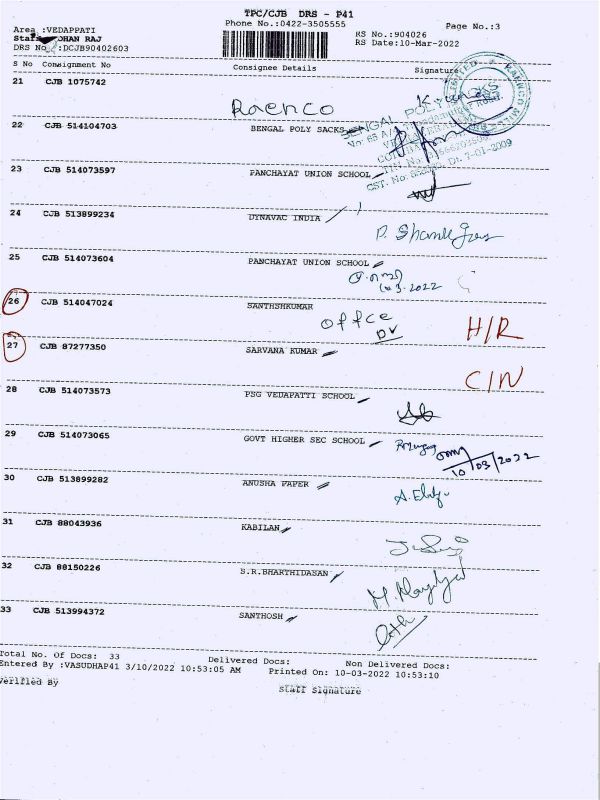 TPC/CJB DRS - P41
Phone No.:0422-3505555
Page No.:3
Area :VEDAPPATI
RS No.:904026
RS Date:10-Mar-2022
DRS No :DCJB90402603
S No Consignment No Consignee Details Signature
21 CJB 1075742
Raenco
22 CJB 514104703 BENGAL POLY SACKS
23 CJB 514073597 PANCHAYAT UNION SCHOOL
24 CJB 513899234 DYNAVAC INDIA
25 CJB 514073604 PANCHAYAT UNION SCHOOL
26 CJB 514047024 SANTHSHKUMAR
offce
H/R
27 CJB 87277350 SARVANA KUMAR
C/N
28 CJB 514073573 PSG VEDAPATTI SCHOOL
29 CJB 514073065 GOVT HIGHER SEC SCHOOL
10/03/2022
30 CJB 513899282 ANUSHA PAPER
31 CJB 88043936 KABILAN
32 CJB 88150226 S.R.BHARTHIDASAN
33 CJB 513994372 SANTHOSH
Total No. Of Docs: 33 Delivered Docs: Non Delivered Docs:
Entered By :VASUDHAP41 3/10/2022 10:53:05 AM Printed On: 10-03-2022 10:53:10
Verified By
Staff Signature